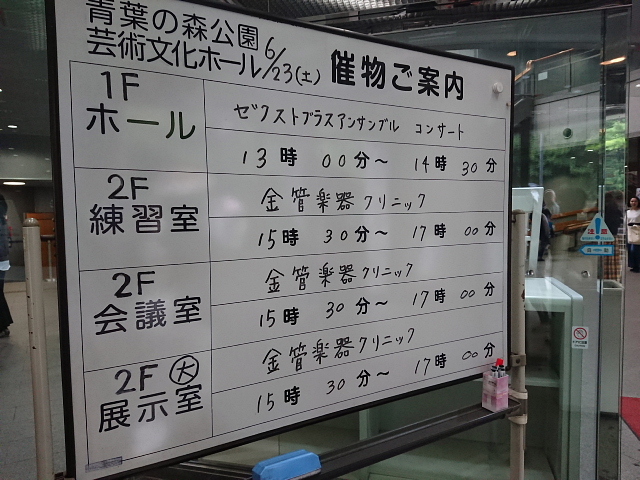 青葉の森公園
芸術文化ホール 6/23(土) 催物ご案内
1F
ホール
ゼクストブラスアンサンブル コンサート
13時 00分～ 14時 30分
2F
練習室
金管楽器クリニック
15時 30分～ 17時 00分
2F
会議室
金管楽器クリニック
15時 30分～ 17時 00分
2F 大
展示室
金管楽器クリニック
15時 30分～ 17時 00分
注意